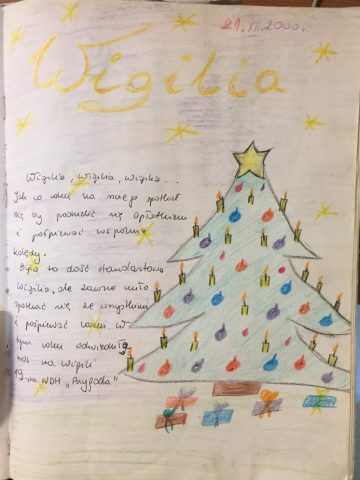 21.XII.2000.
Wigilia
Wigilia, wigilia, wigilia...
Jak co roku na mieję spotkał
się by podzielić się opłatkiem
i pośpiewać wspólnie
kolędy.
Była to dość standartowa
Wigilia, ale zawsze miło
spotkać się ze wszystkimi
i pośpiewać razem. W
tym roku odwiedziła
nas na Wigilii
19-ta WDH „Przygoda”.